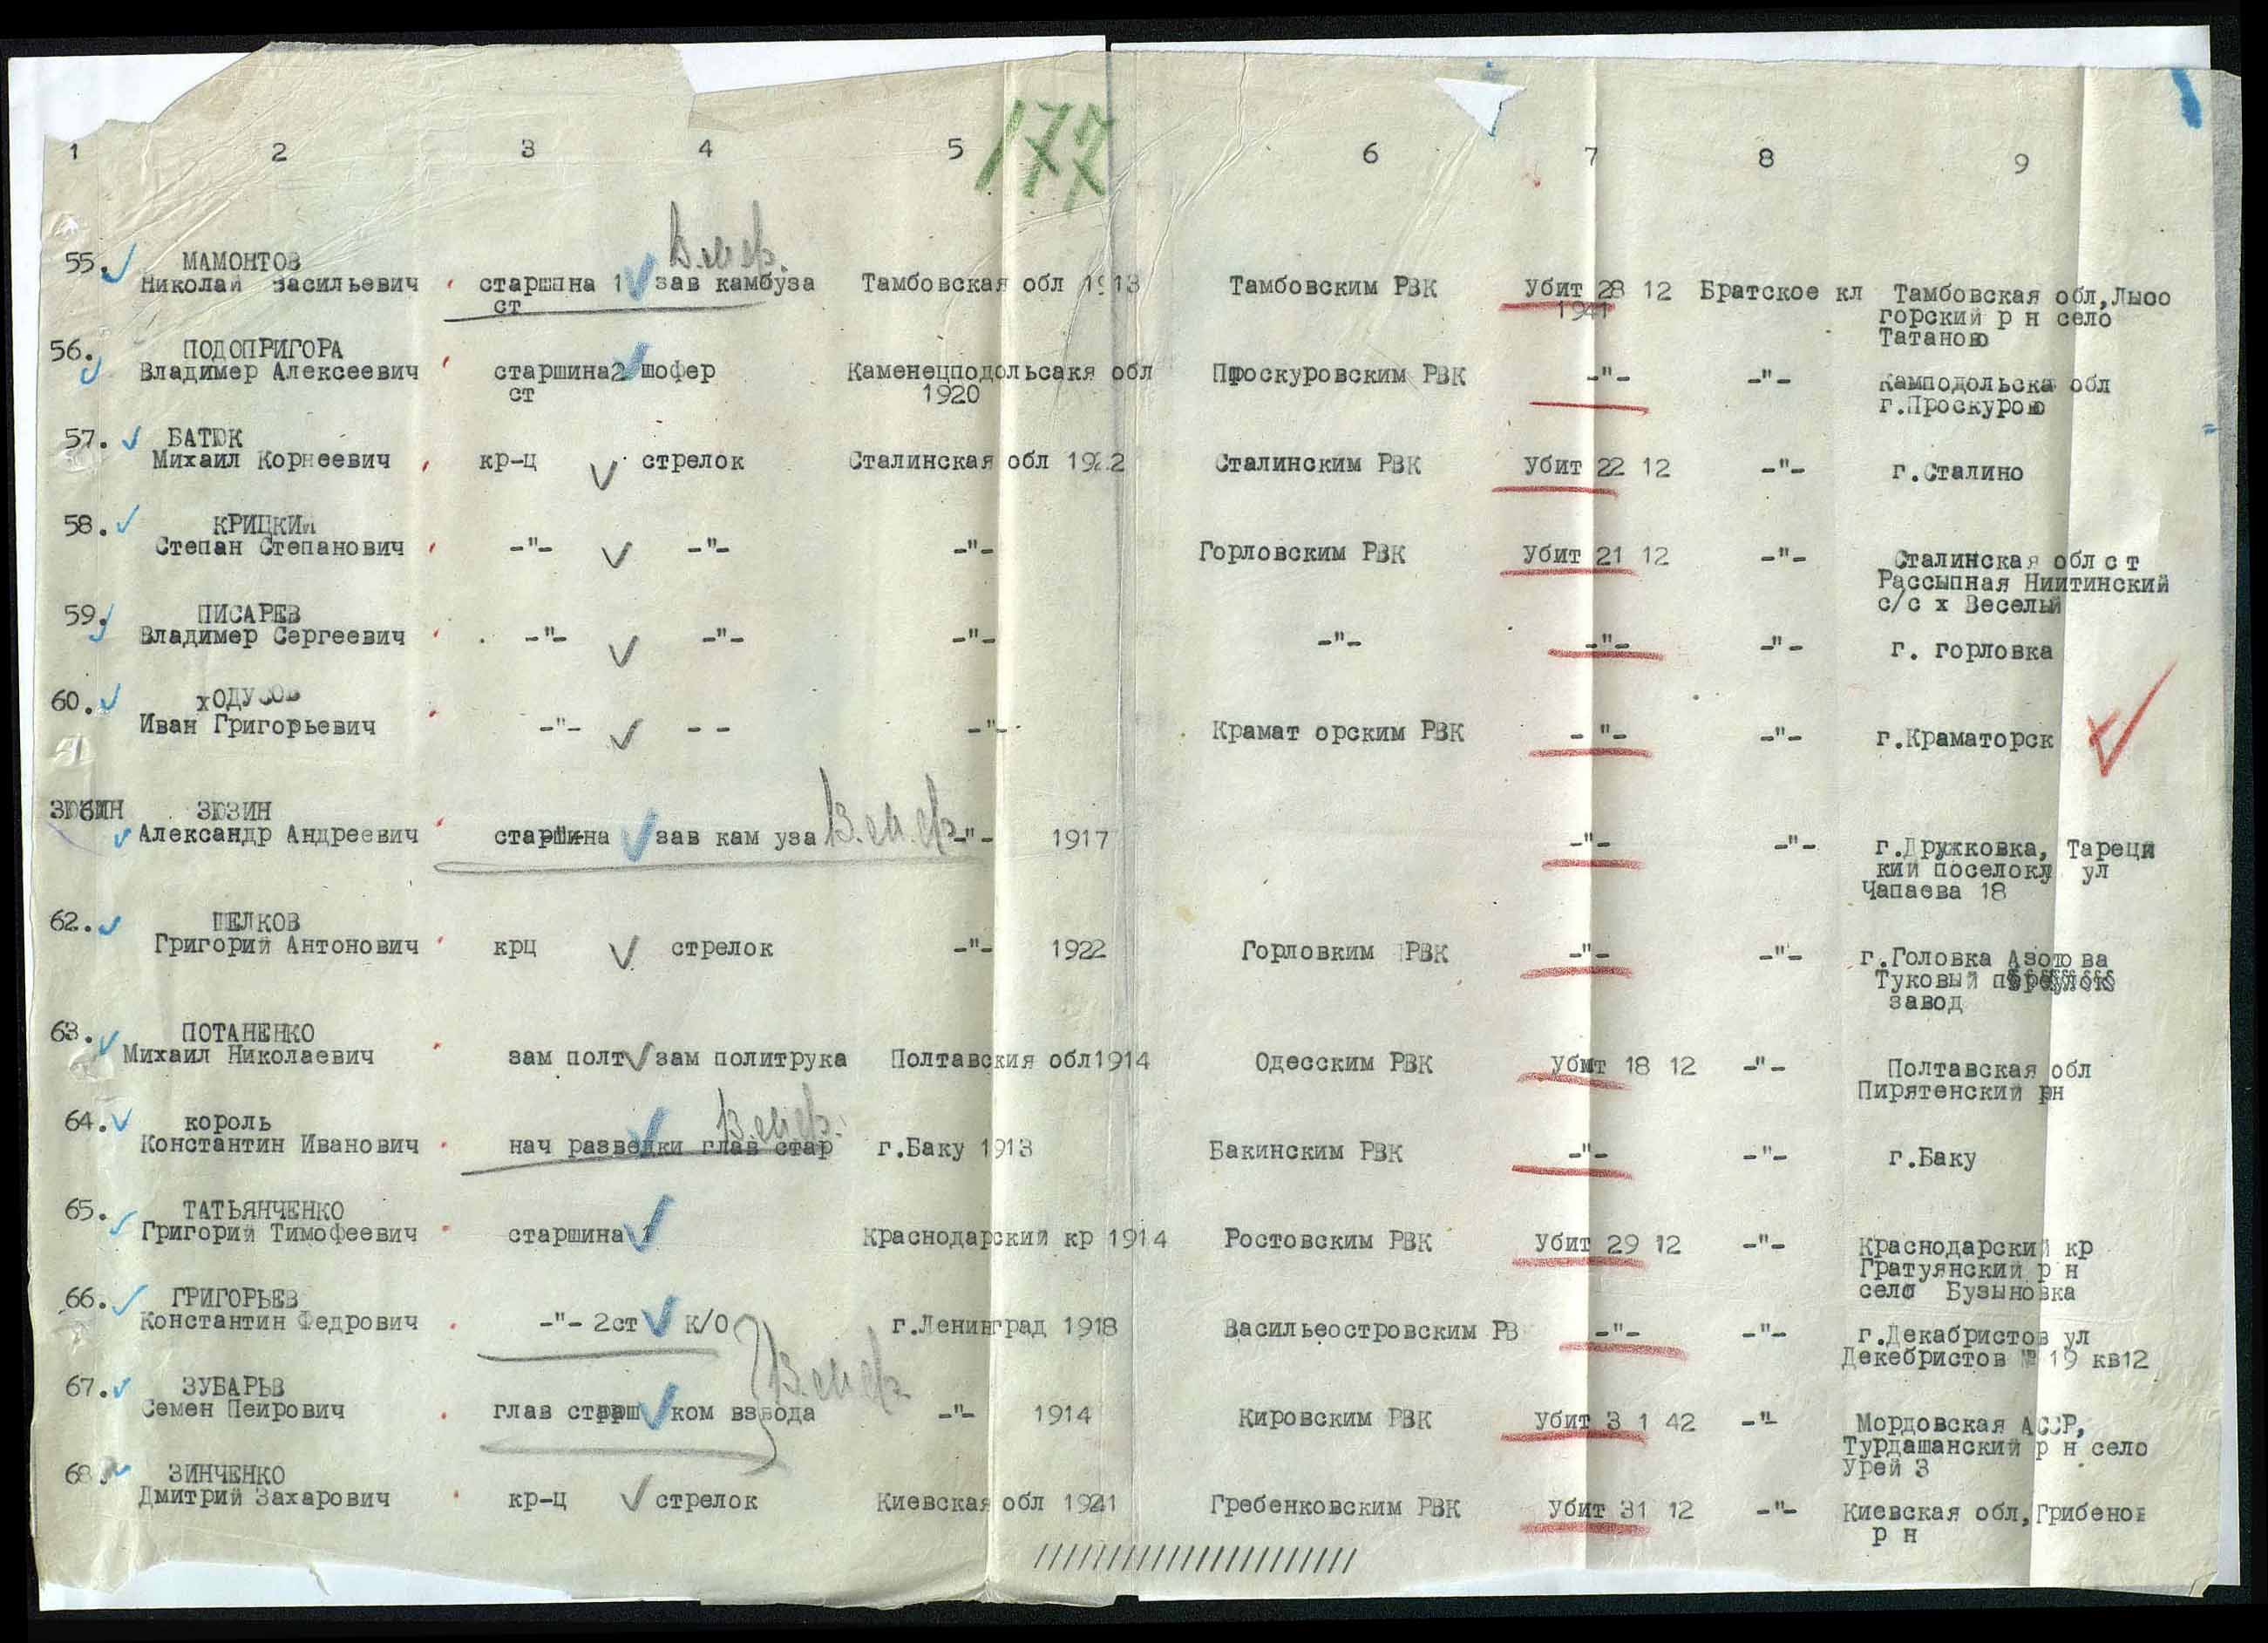 177
1 2 3 4 5 6 7 8 9
В.м.ф.
55. МАМОНТОВ
Николай Васильевич старшина 1 зав камбуза Тамбовская обл 1913 Тамбовским РВК Убит 28 12 Братское кл Тамбовская обл,Лысо
ст 1941 горский р н село
Татаново
56. ПОДОПРИГОРА
Владимер Алексеевич старшина2 шофер Каменецподольсакя обл Проскуровским РВК -"- -"- Камподольска обл
ст 1920 г.Проскурово
57. БАТЮК
Михаил Корнеевич кр-ц стрелок Сталинская обл 1922 Сталинским РВК Убит 22 12 -"- г.Сталино
58. КРИЦКИИ
Степан Степанович -"- -"- -"- Горловским РВК Убит 21 12 -"- Сталинская обл с т
Рассыпная Ниитинский
с/с х Веселый
59. ПИСАРЕВ
Владимер Сергеевич -"- -"- -"- -"- -"- -"- г. горловка
60. хОДУСОВ
Иван Григорьевич -"- - - -"- Крамат орским РВК -"- -"- г.Краматорск
ЗЮЗИН
Александр Андреевич старшина зав кам уза В.м.ф. -"- 1917 -"- -"- г.Дружковка, Тареци
кий поселоку ул
Чапаева 18
62. ШЕЛКОВ
Григорий Антонович крц стрелок -"- 1922 Горловким РВК -"- -"- г.Головка Азотова
Туковый переулок
завод
63. ПОТАНЕНКО
Михаил Николаевич зам полт зам политрука Полтавския обл1914 Одесским РВК Убит 18 12 -"- Полтавская обл
Пирятенский рн
В.м.ф.
64. король
Константин Иванович нач разведки глав стар г.Баку 1913 Бакинским РВК -"- -"- г.Баку
65. ТАТЬЯНЧЕНКО
Григорий Тимофеевич старшина 1 Краснодарский кр 1914 Ростовским РВК Убит 29 12 -"- Краснодарский кр
Гратуянский р н
село Бузыновка
66. ГРИГОРЬЕВ
Константин Федрович -"- 2ст К/О г.Ленинград 1918 Васильеостровским РВ -"- -"- г.Декабристов ул
Декебристов № 19 кв12
В.м.ф.
67. ЗУБАРЬВ
Семен Пеирович глав старш ком взвода -"- 1914 Кировским РВК Убит 3 1 42 -"- Мордовская АССР,
Турдашанский р н село
Урей 3
68 ЗИНЧЕНКО
Дмитрий Захарович кр-ц стрелок Киевская обл 1921 Гребенковским РВК Убит 31 12 -"- Киевская обл,Грибенов
р н
//////////////////////